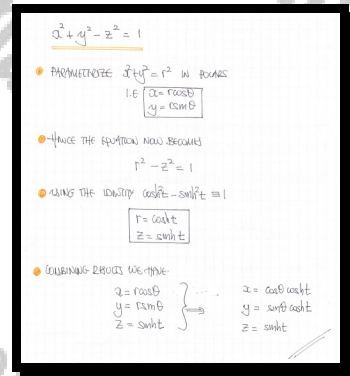 x² + y² - z² = 1
PARAMETRIZE x²+y² = r² IN POLARS
I.E x = rcosθ
y = rsinθ
HENCE THE EQUATION NOW BECOMES
r² - z² = 1
USING THE IDENTITY cosh²t - sinh²t ≡ 1
r = cosht
z = sinht
COMBINING RESULTS WE HAVE
x = rcosθ
y = rsinθ
z = sinht
..... ⇒
x = cosθ cosht
y = sinθ cosht
z = sinht